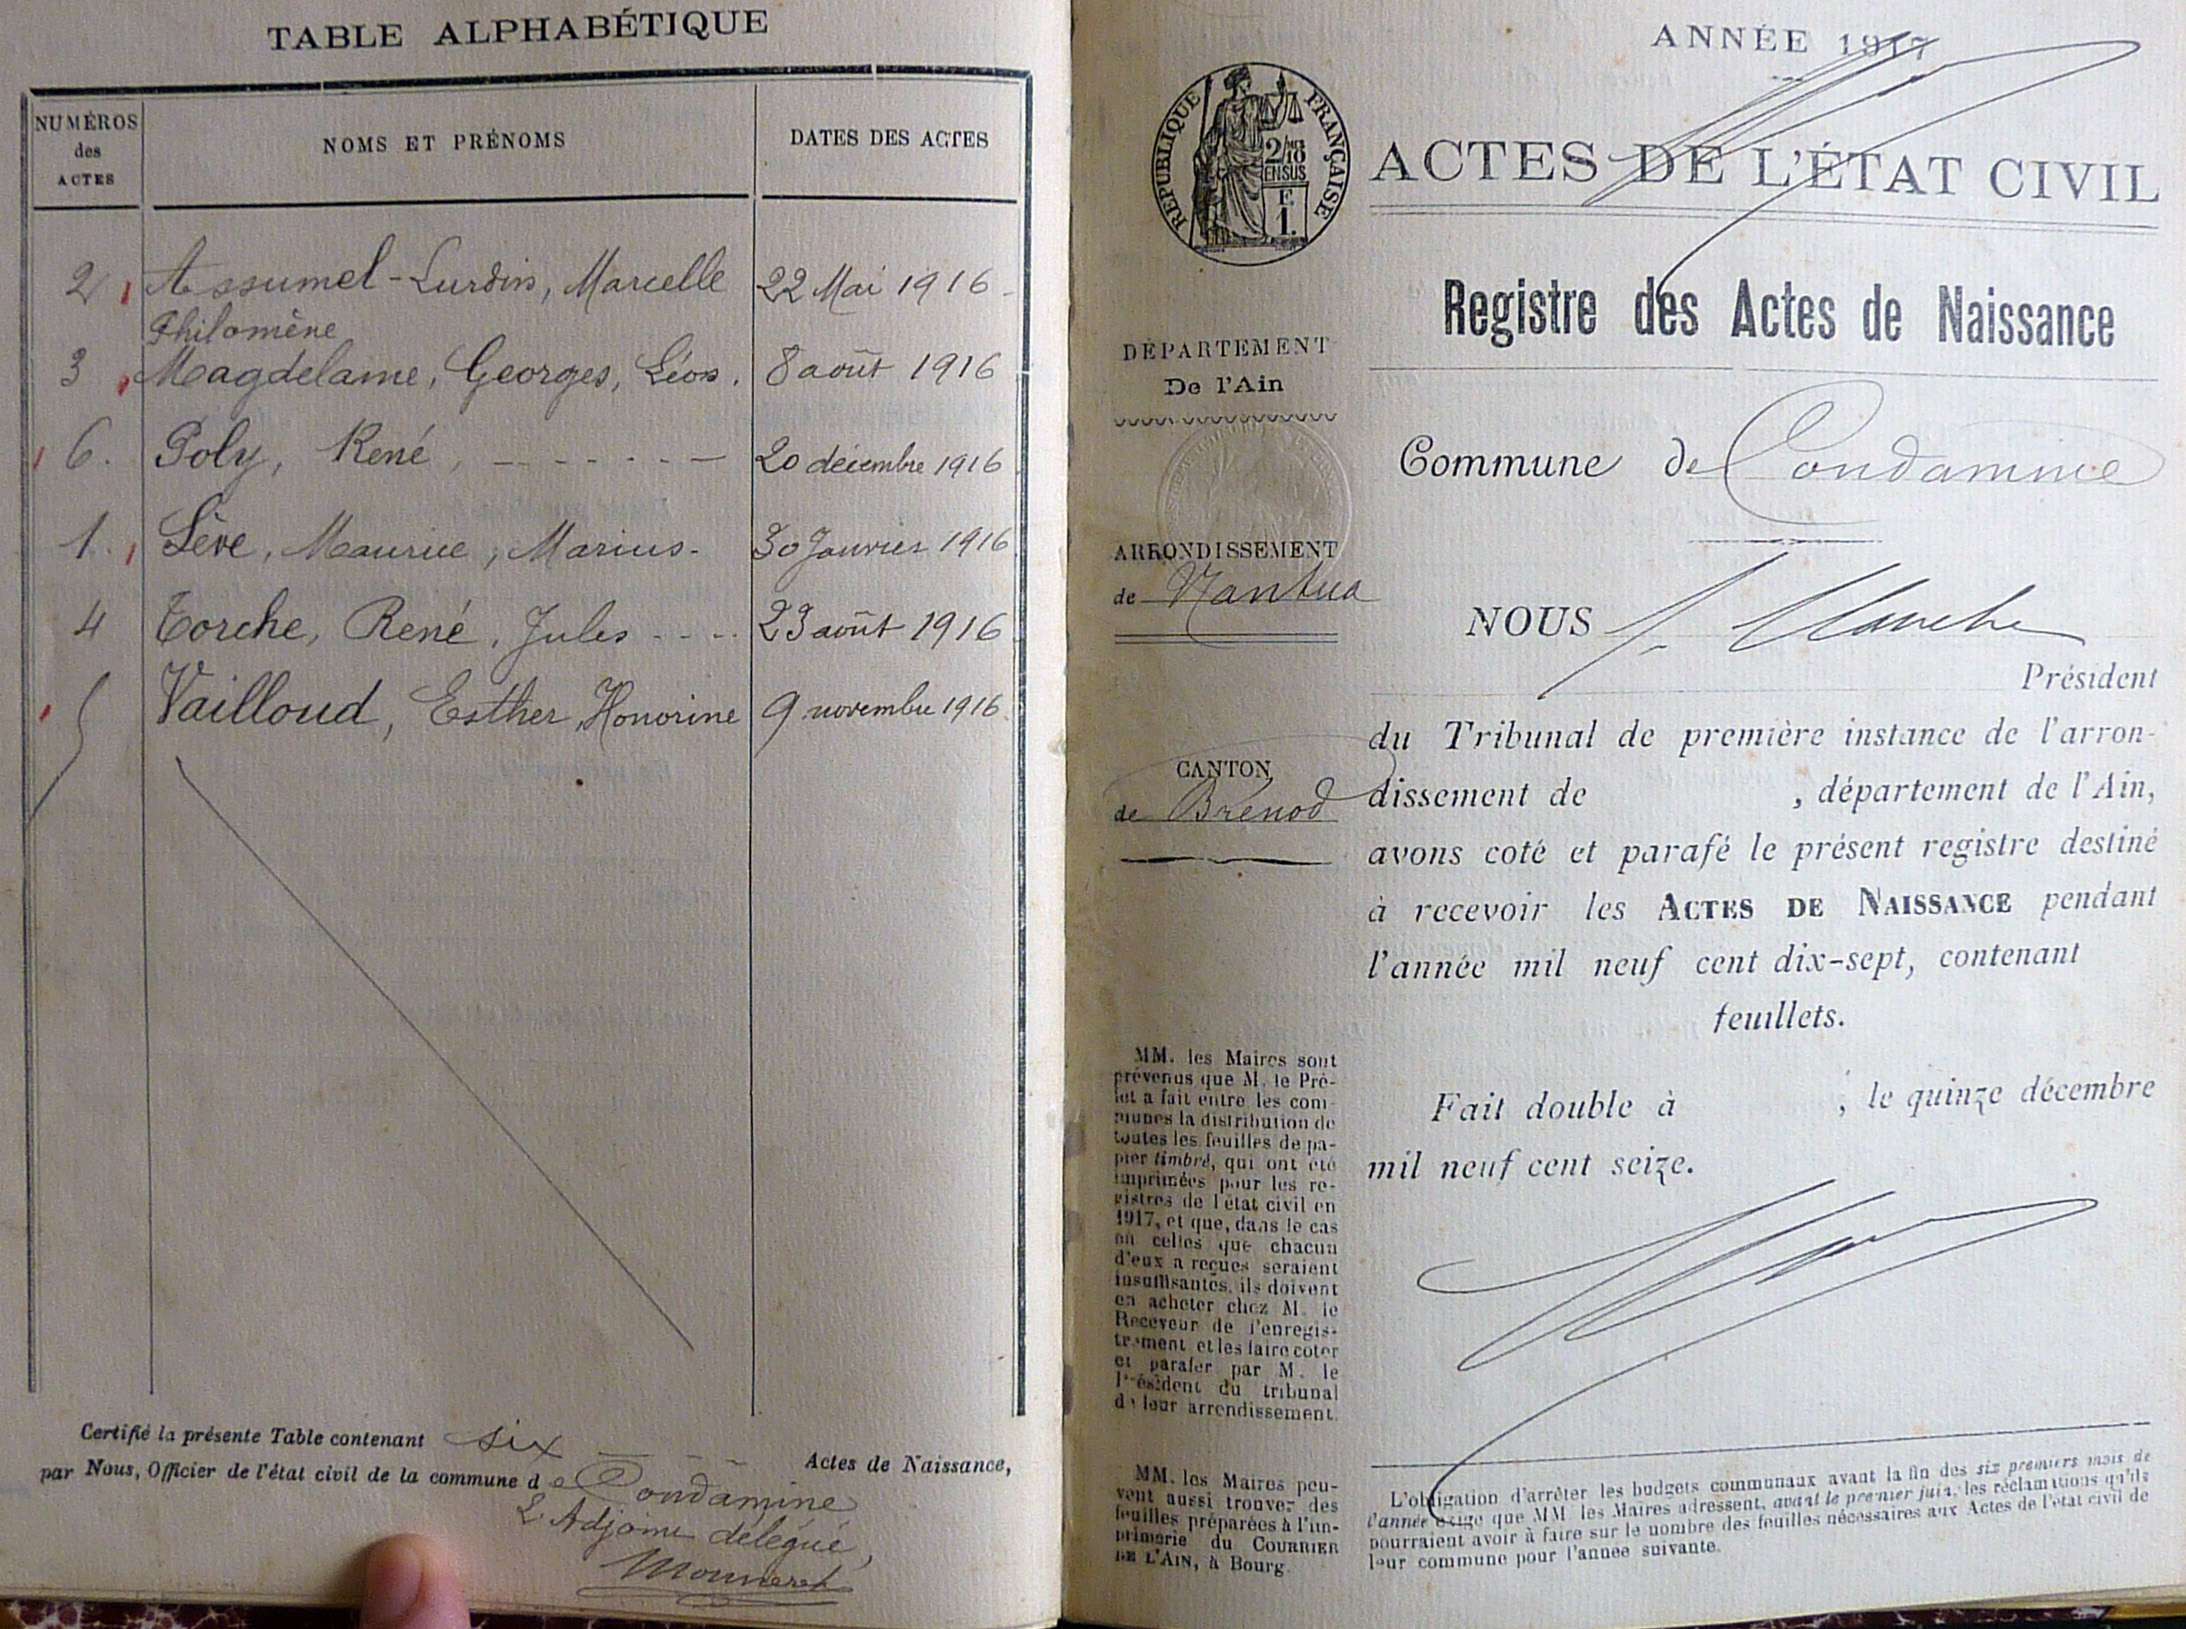 TABLE ALPHABÉTIQUE
NUMÉROS
des
ACTES
NOMS ET PRÉNOMS
DATES DES ACTES
2 Assumel-Lurdin, Marcelle 22 Mai 1916
Philomène
3 Magdelaine, Georges, Léon. 8 août 1916
6. Poly, René, 20 décembre 1916
1. Sève, Maurice, Marius. 30 Janvier 1916
4 Torche, René, Jules 23 août 1916
5 Vailloud, Esther, Honorine 9 novembre 1916
Certifié la présente Table contenant six Actes de Naissance,
par Nous, Officier de l'état civil de la commune de Condamine
L'Adjoint délégué,
ANNÉE 1917
RÉPUBLIQUE FRANÇAISE
2/10
EN SUS
F.
1.
ACTES DE L'ÉTAT CIVIL
Registre des Actes de Naissance
DÉPARTEMENT
De l'Ain
Commune de Condamine
ARRONDISSEMENT
de Nantua
NOUS
Président
du Tribunal de première instance de l'arron-
dissement de , département de l'Ain,
CANTON
de Brénod
avons coté et parafé le présent registre destiné
à recevoir les ACTES DE NAISSANCE pendant
l'année mil neuf cent dix-sept, contenant
feuillets.
Fait double à , le quinze décembre
mil neuf cent seize.
MM. les Maires sont
prévenus que M. le Pré-
fet a fait entre les com-
munes la distribution de
toutes les feuilles de pa-
pier timbré, qui ont été
imprimées pour les re-
gistres de l'état civil en
1917, et que, dans le cas
où celles que chacun
d'eux a reçues seraient
insuffisantes, ils doivent
en acheter chez M. le
Receveur de l'enregis-
trement et les faire coter
et parafer par M. le
Président du tribunal
de leur arrondissement.
MM. les Maires peu-
vent aussi trouver des
feuilles préparées à l'im-
primerie du COURRIER
DE L'AIN, à Bourg.
L'obligation d'arrêter les budgets communaux avant la fin des six premiers mois de
l'année exige que MM. les Maires adressent, avant le premier juin, les réclamations qu'ils
pourraient avoir à faire sur le nombre des feuilles nécessaires aux Actes de l'état civil de
leur commune pour l'année suivante.